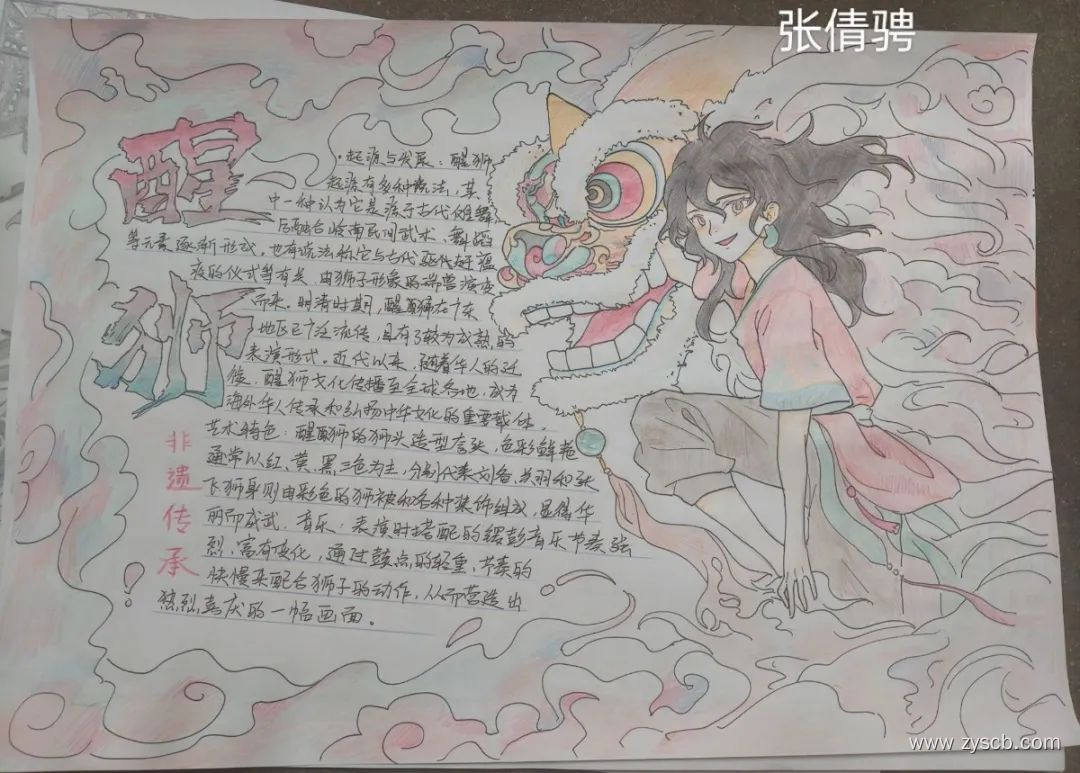 张倩骋
醒狮
·起源与发展：醒狮
起源有多种说法，其
中一种认为它是源于古代傩舞
后融合岭南民间武术、舞蹈
等元素逐渐形成，也有说法称它与古代驱
疫的仪式等有关，由狮子形象的瑞兽演变
而来。明清时期，醒狮在广东
地区已广泛流传，且有了较为成熟的
表演形式。近代以来，随着华人的迁
徙，醒狮文化传播至全球各地，成为
海外华人传承和弘扬中华文化的重要载体。
艺术特色：醒狮的狮头造型夸张，色彩鲜艳
通常以红、黄、黑三色为主，分别代表刘备、关羽和张
飞狮身则由彩色的狮被和各种装饰组成，显得华
丽而威武。音乐：表演时搭配的锣鼓音乐节奏强
烈，富有变化，通过鼓点的轻重、节奏的
快慢来配合狮子的动作，从而营造出
热烈喜庆的一幅画面。
非遗传承
www.zyscb.com